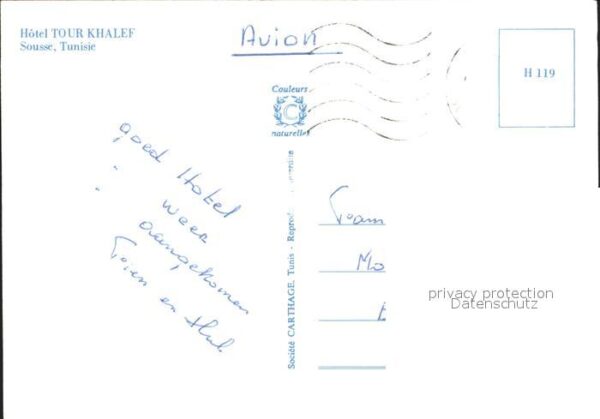 Hôtel TOUR KHALEF
Sousse, Tunisie
Avion
H 119
Couleurs
C
naturelles
goed Hotel
" weer
" aangekomen
en
Société CARTHAGE, Tunis - Reprod.
Mo
privacy protection
Datenschutz